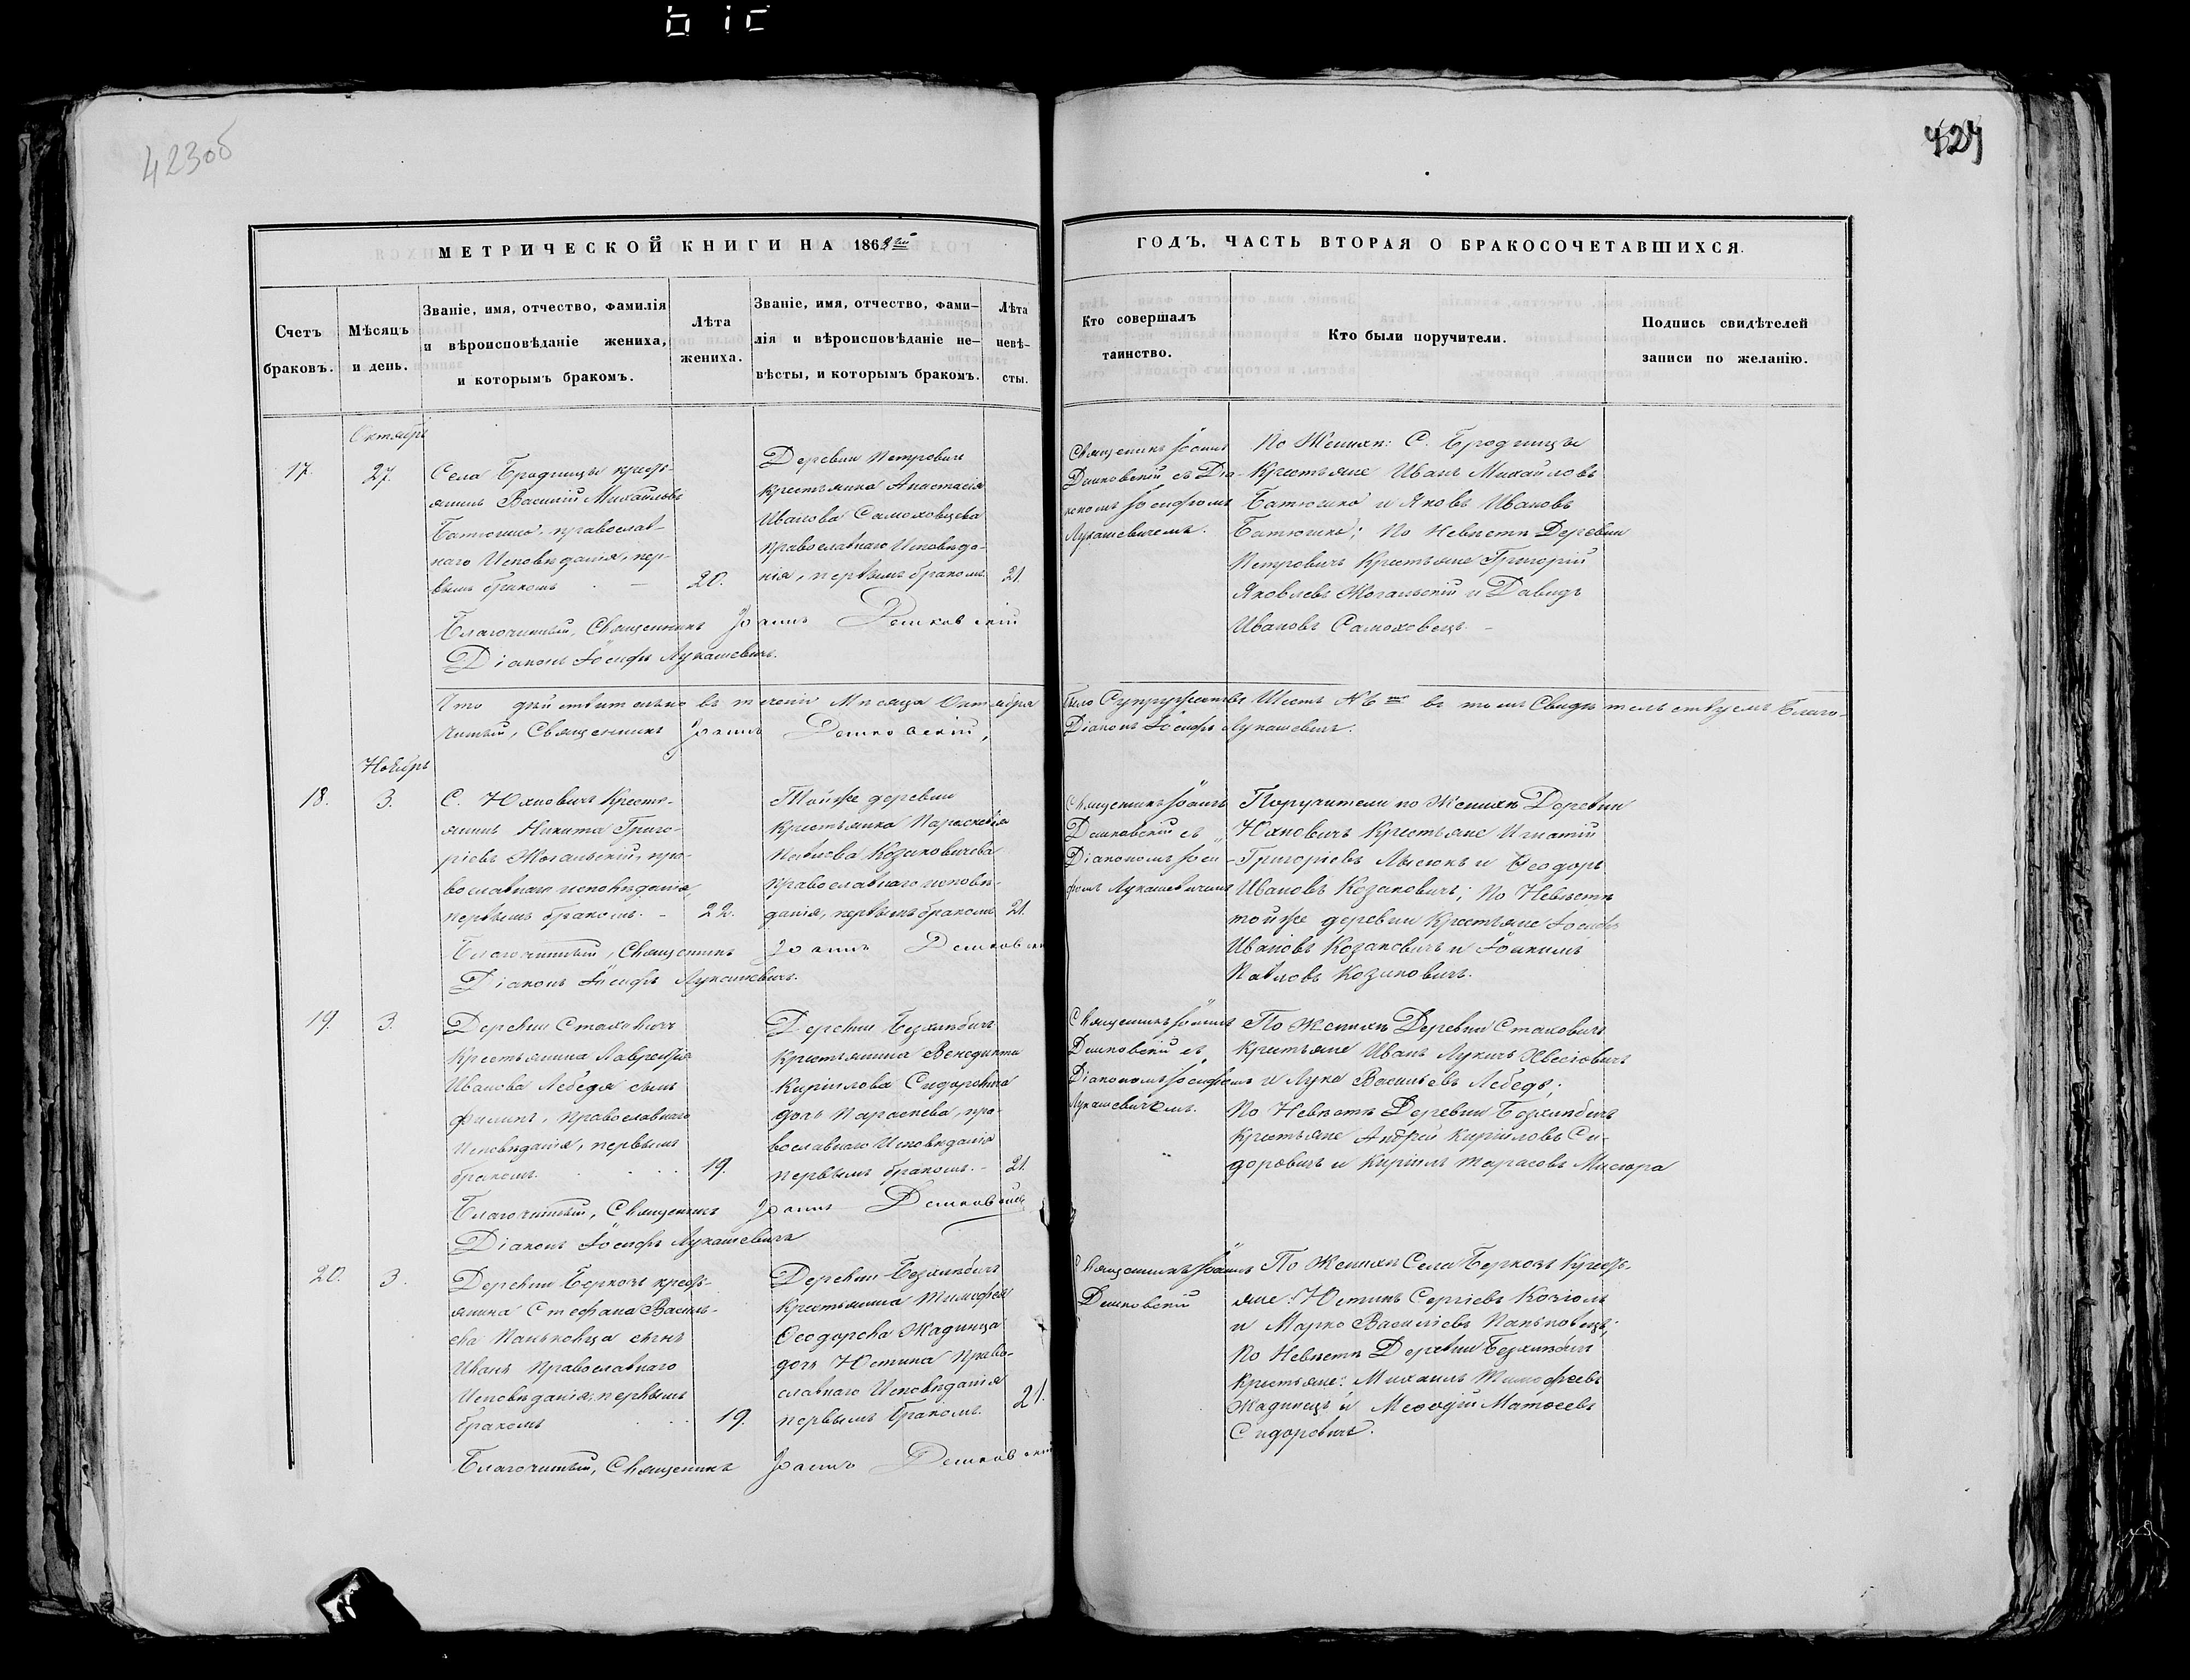 423об
424
МЕТРИЧЕСКОЙ КНИГИ НА 1868й
ГОДЪ. ЧАСТЬ ВТОРАЯ О БРАКОСОЧЕТАВШИХСЯ.
Счетъ
браковъ.
Мѣсяцъ
и день.
Званіе, имя, отчество, фамилія
и вѣроисповѣданіе жениха,
и которымъ бракомъ.
Лѣта
жениха.
Званіе, имя, отчество, фами-
лія и вѣроисповѣданіе не-
вѣсты, и которымъ бракомъ.
Лѣта
невѣ-
сты.
Кто совершалъ
таинство.
Кто были поручители.
Подпись свидѣтелей
записи по желанію.
Октябрь
17.
27.
Села Бродницы крест-
янинъ Василій Михайловъ
Батюшко, православ-
наго Исповѣданія, пер-
вымъ бракомъ
20.
Деревни Петровичъ
крестьянка Анастасія
Иванова Самоховцева
православнаго Исповѣда-
нія, первымъ бракомъ.
21.
Священникъ Іоаннъ
Дешковскій съ Діа-
кономъ Іосифомъ
Лукашевичемъ.
По Женихѣ: С. Бродницы
Крестьяне Иванъ Михайловъ
Батюшко и Яковъ Ивановъ
Батюшко; По Невѣстѣ Деревни
Петровичъ Крестьяне Григорій
Яковлевъ Жогальскій и Давидъ
Ивановъ Самоховецъ. –
Благочинный, Священникъ Іоаннъ Дешковскій
Діаконъ Іосифъ Лукашевичъ.
Что дѣйствительно въ теченіи Мѣсяца Октября было Супружествъ Шесть № 6 въ томъ Свидѣтельствуемъ Благо-
чинный, Священникъ Іоаннъ Дешковскій, Діаконъ Іосифъ Лукашевичъ.
Ноябрь
18.
3.
С. Юхновичъ Кресть-
янинъ Никита Григо-
ріевъ Жогальскій, пра-
вославнаго исповѣданія,
первымъ бракомъ. –
22.
Тойже деревни
Крестьянка Параскевія
Павлова Козаковичева
православнаго исповѣ-
данія, первымъ бракомъ
21.
Священникъ Іоаннъ
Дешковскій съ
Діакономъ Іоси-
фомъ Лукашевичемъ
Поручители по Женихѣ Деревни
Юхновичъ Крестьяне Игнатій
Григоріевъ Лысюкъ и Ѳеодоръ
Ивановъ Козаковичъ; По Невѣстѣ
тойже деревни Крестьяне Іосифъ
Ивановъ Козаковичъ и Іоакимъ
Павловъ Козаковичъ.
Благочинный, Священникъ Іоаннъ Дешковскій
Діаконъ Іосифъ Лукашевичъ.
19.
3.
Деревни Стаховичъ
Крестьянина Лаврентія
Иванова Лебедя сынъ
Филипъ, Православнаго
Исповѣданія, первымъ
бракомъ.
19.
Деревни Безхлѣбичъ
Крестьянина Венедикта
Кириллова Сидоровича
дочь Параскева, пра-
вославнаго Исповѣданія
первымъ бракомъ. –
21.
Священникъ Іоаннъ
Дешковскій съ
Діакономъ Іосифомъ
Лукашевичемъ.
По Женихѣ Деревни Стаховичъ
Крестьяне Иванъ Лукичъ
и Лука Васильевъ Лебедь;
По Невѣстѣ Деревни Безхлѣбичъ
Крестьяне Андрей Кирилловъ Си-
доровичъ и Кирилъ Тарасовъ Мисюра
Благочинный, Священникъ Іоаннъ Дешковскій
Діаконъ Іосифъ Лукашевичъ
20.
3.
Деревни Беркозъ крест-
янина Стефана Василь-
ева Паньковца сынъ
Иванъ Православнаго
Исповѣданія, первымъ
бракомъ
19.
Деревни Безхлѣбичъ
Крестьянина Тимофея
Ѳеодорова Жадинца
дочь Юстина Право-
славнаго Исповѣданія
первымъ бракомъ.
21.
Священникъ Іоаннъ
Дешковскій
По Женихѣ Села Беркозъ Крест-
яне: Юстинъ Сергіевъ Козіолъ
и Марко Василіевъ Паньковецъ;
По Невѣстѣ Деревни Безхлѣбичъ
Крестьяне: Михаилъ Тимофеевъ
Жадинецъ и Меѳодій Матѳеевъ
Сидоровичъ.
Благочинный, Священникъ Іоаннъ Дешковскій